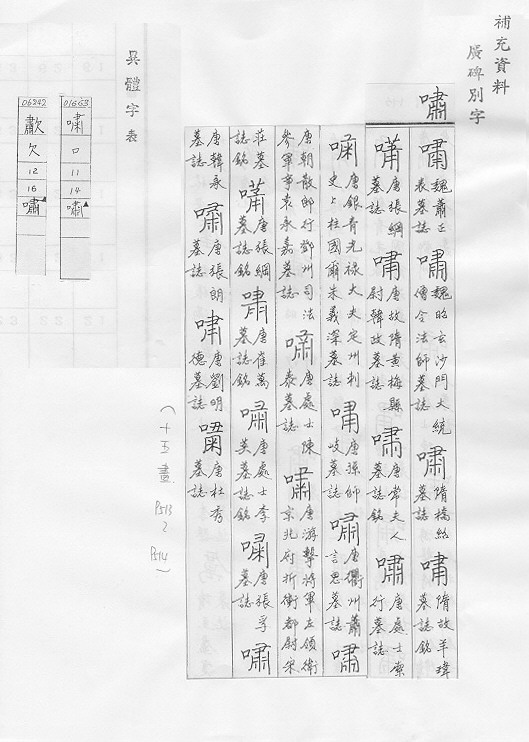 補充資料
廣碑別字
嘯
嘯 魏蕭正表墓誌 嘯 魏昭玄沙門大統僧令法師墓誌 嘯 隋橋紹墓誌 嘯 隋故羊瑋墓誌銘
唐張綱墓誌 嘯 唐故隋黃梅縣尉韓政墓誌 嘯 唐常夫人墓誌銘 嘯 唐處士索行墓誌
唐銀青光祿大夫定州刺史上柱國爾朱義深墓誌 嘯 唐孫師岐墓誌 嘯 唐衢州蕭言思墓誌 嘯
唐朝散郎行鄧州司法參軍事袁永嘉墓誌 唐處士陳泰墓誌 唐游擊將軍左領衛京兆府折衝都尉宋
莊墓誌銘 唐張綱墓誌銘 唐崔萬墓誌銘 唐處士李英墓誌銘 唐張孚墓誌 嘯
唐韓永墓誌 嘯 唐張朗墓誌 唐劉明德墓誌 唐杜秀墓誌
(十五畫 P513 P514)
異體字表
01663
口
11
14
06242
欠
12
16
嘯